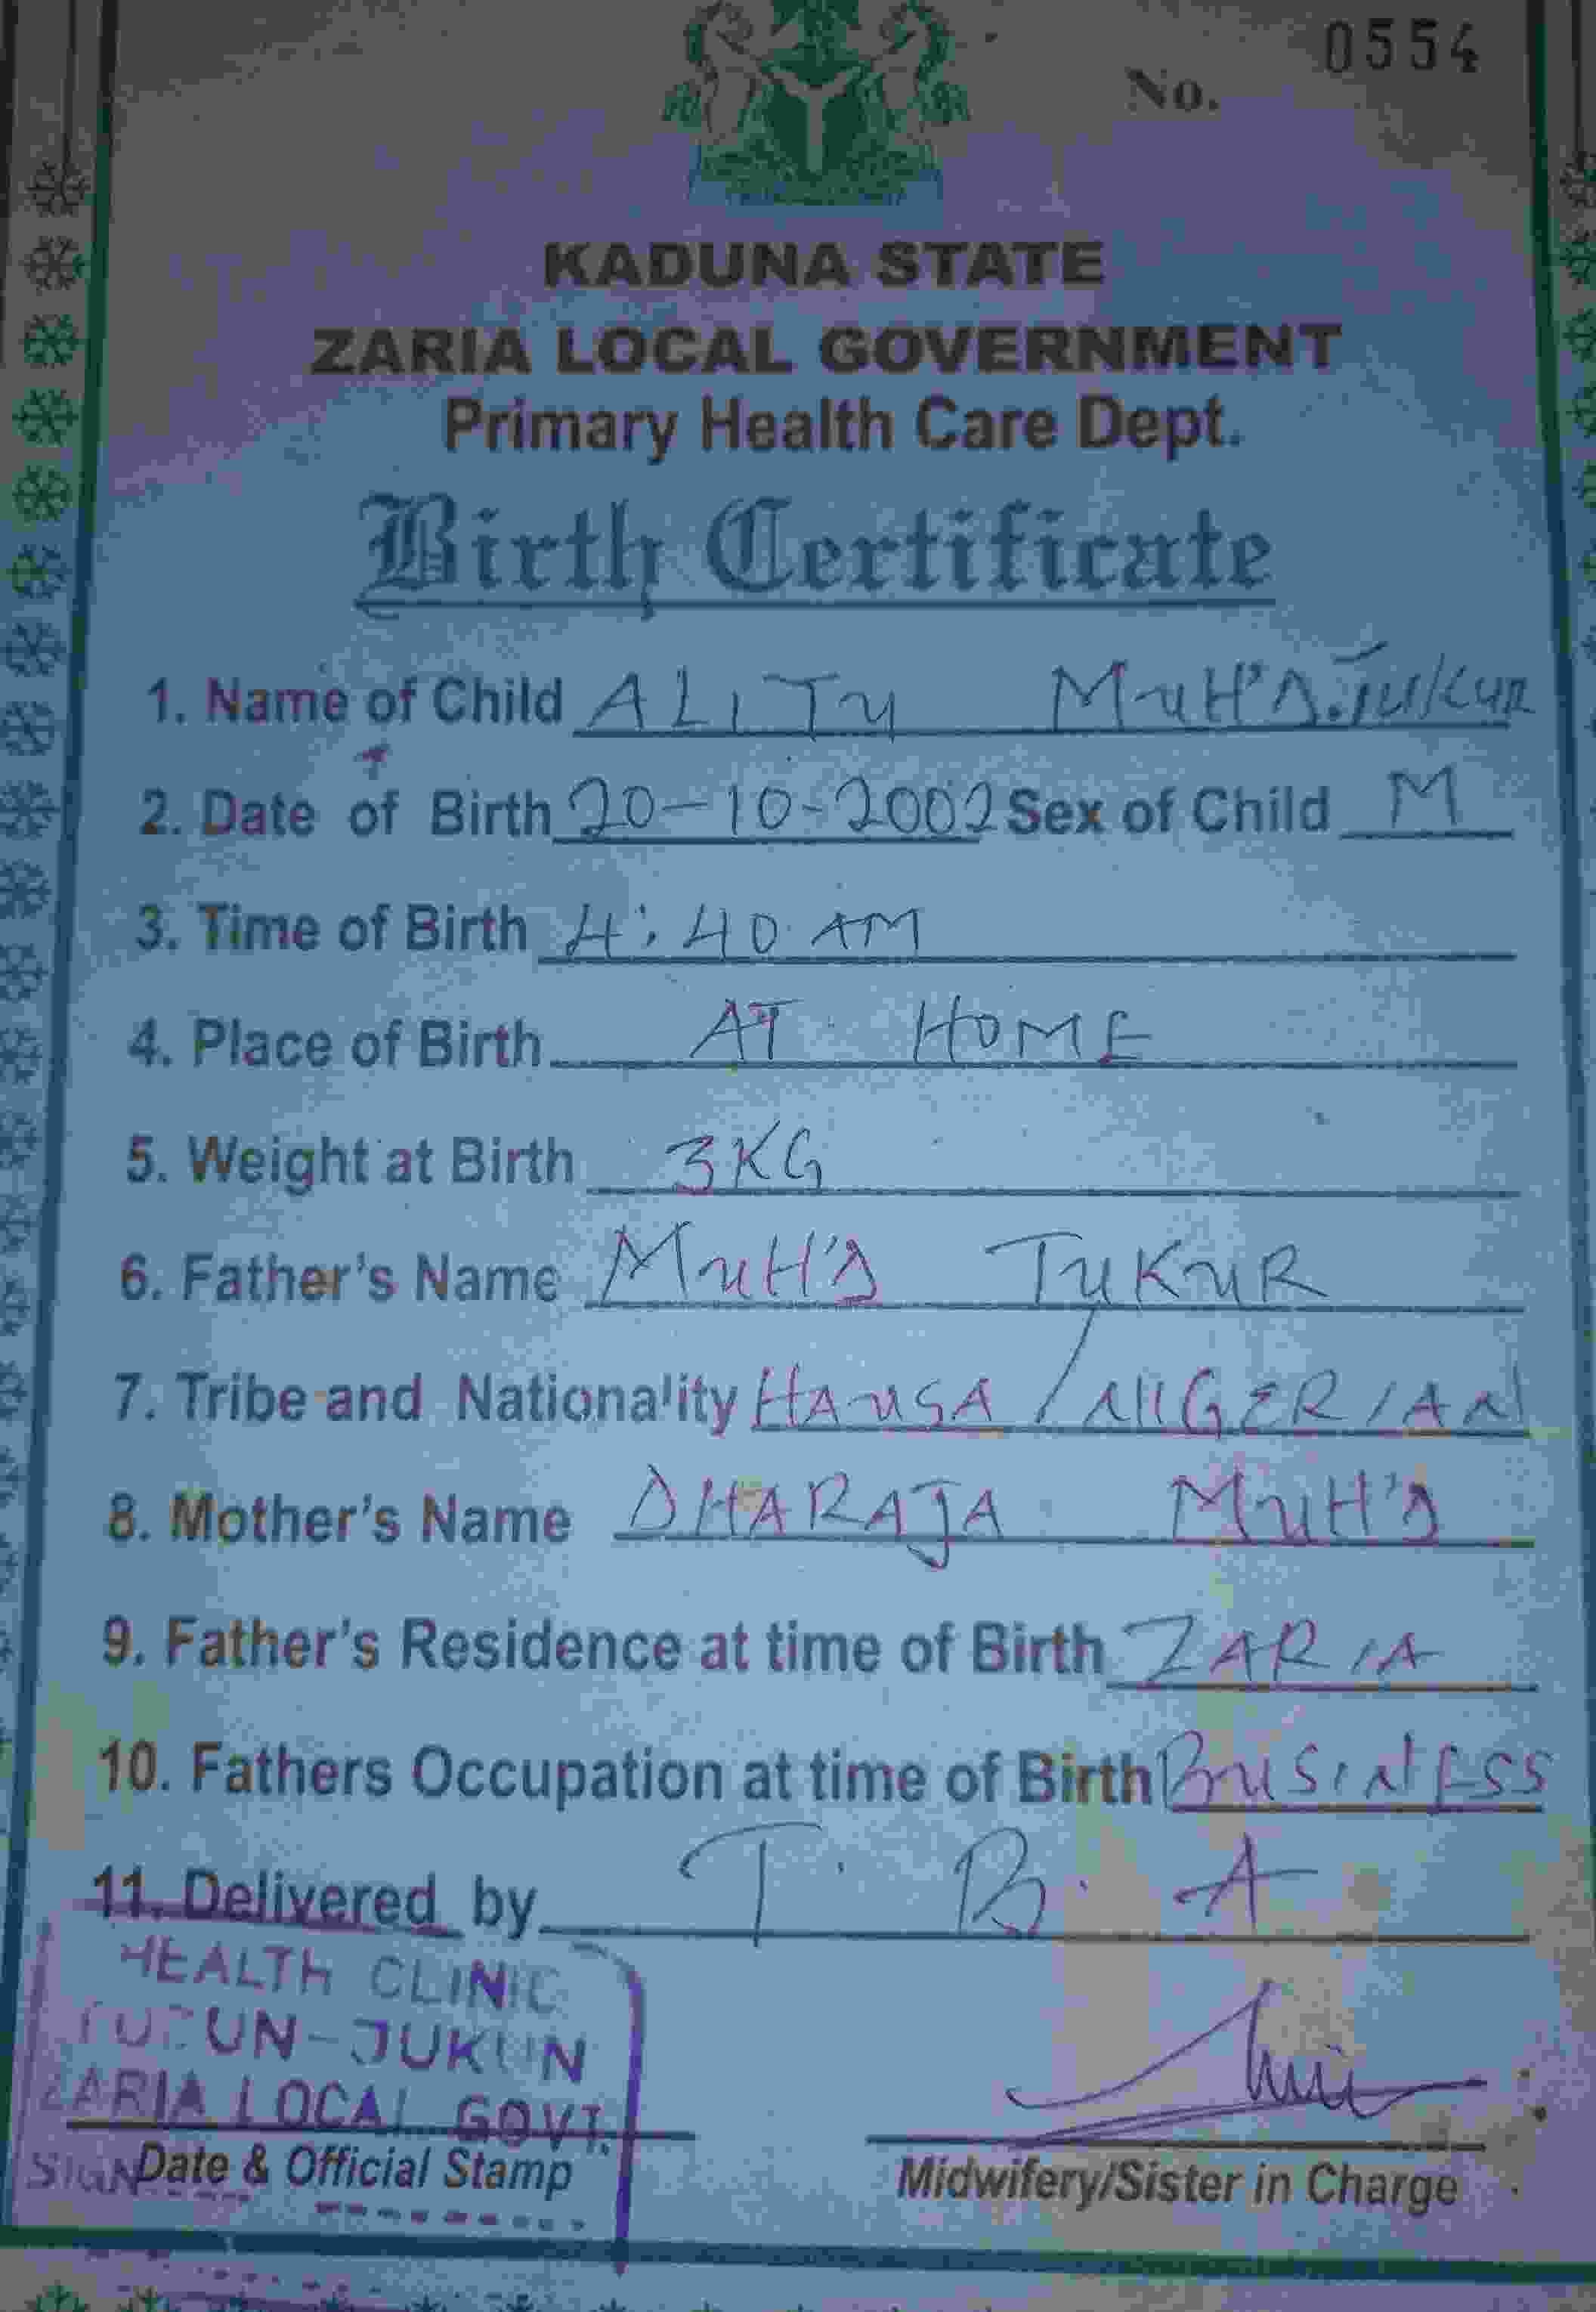 0554
No.
KADUNA STATE
ZARIA LOCAL GOVERNMENT
Primary Health Care Dept.
Birth Certificate
1. Name of Child ALITU MUH'D. TUKUR
2. Date of Birth 20-10-2002 Sex of Child M
3. Time of Birth 4:40 AM
4. Place of Birth AT HOME
5. Weight at Birth 3KG
6. Father's Name MUH'D TUKUR
7. Tribe and Nationality HAUSA / NIGERIAN
8. Mother's Name DHARAJA MUH'D
9. Father's Residence at time of Birth ZARIA
10. Fathers Occupation at time of Birth BUSINESS
11. Delivered by T. B. A
HEALTH CLINIC
JUKUN
ZARIA LOCAL GOVT.
SIGN
Date & Official Stamp
Midwifery/Sister in Charge